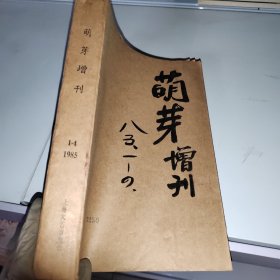 萌芽增刊
1-4
1985
萌芽
增刊
八五.一-四.